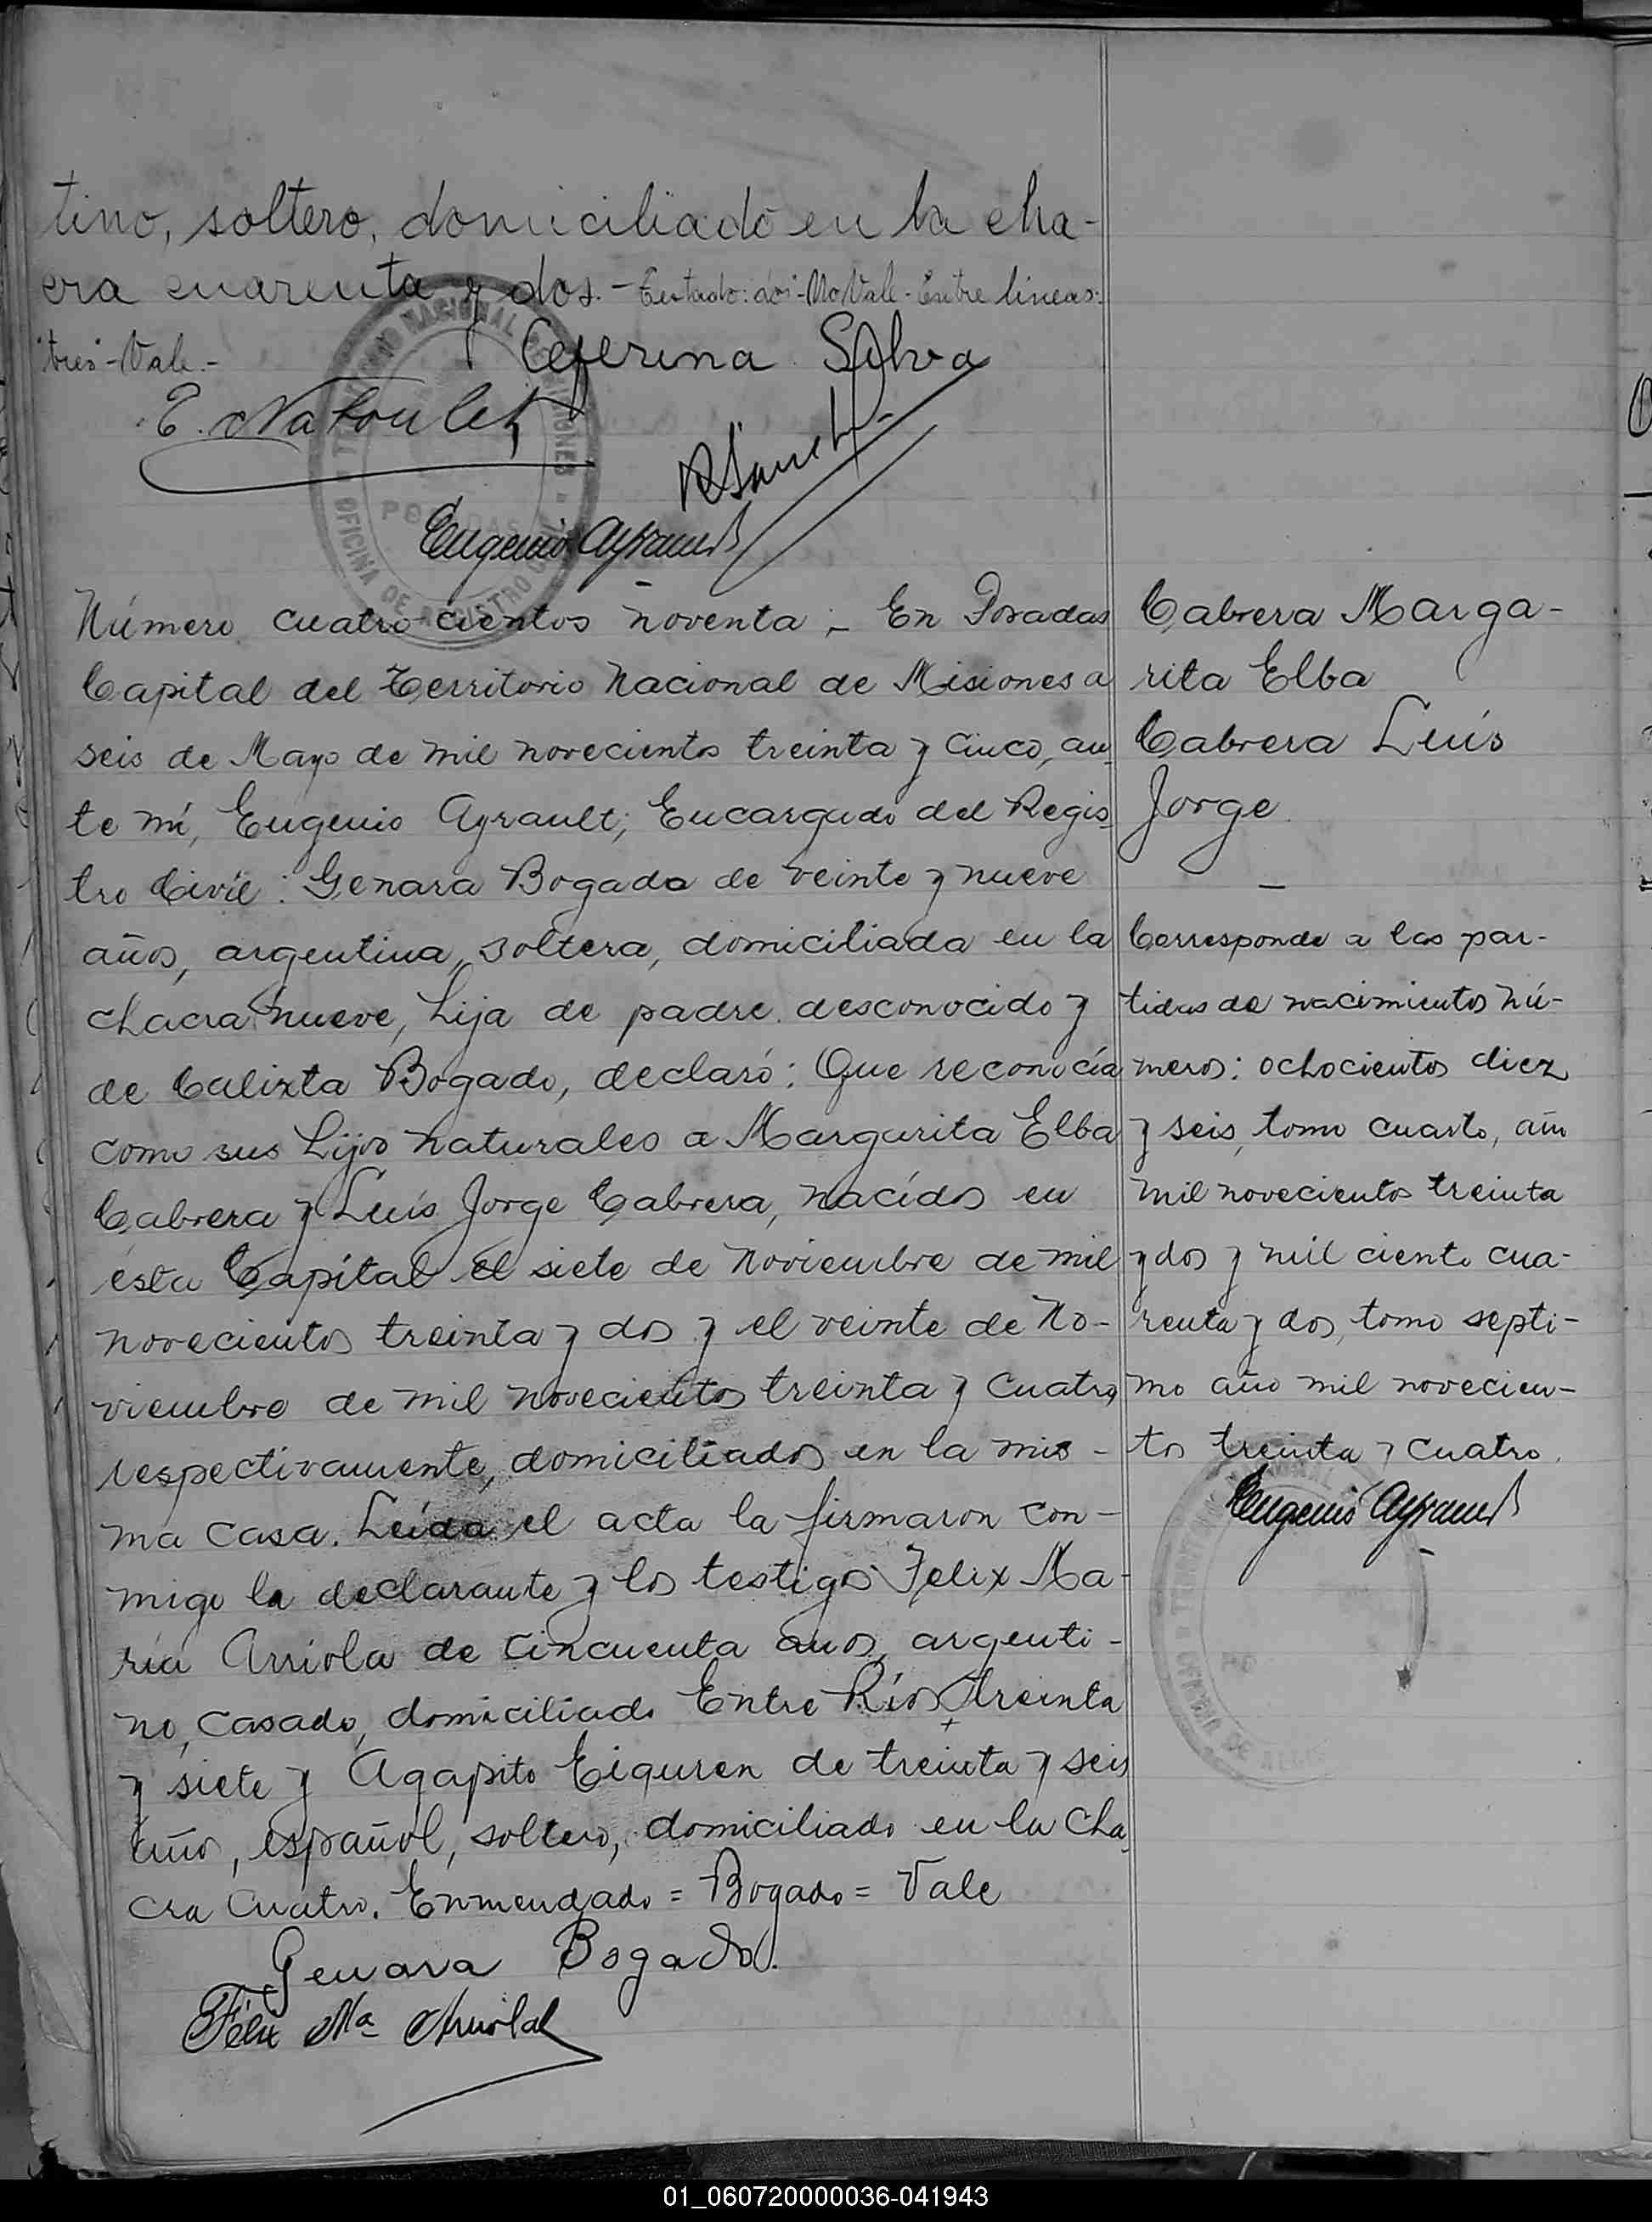 tino, soltero, domiciliado en la cha-
cra cuarenta y dos. - Testado: dos - No Vale - Entre lineas:
"tres" - Vale. -
Ceferina Silva
E. Natoulet
Eugenio Ayrault
TERRITORIO NACIONAL DE MISIONES
POSADAS
OFICINA DE REGISTRO
Número cuatro cientos noventa; - En Posadas
Capital del Territorio Nacional de Misiones a
seis de Mayo de mil novecientos treinta y cinco, an-
te mí, Eugenio Ayrault; Encargado del Regis-
tro Civil: Genara Bogado de veinte y nueve
años, argentina, soltera, domiciliada en la
chacra nueve, hija de padre desconocido y
de Calixta Bogado, declaró: Que reconocía
como sus hijos naturales a Margarita Elba
Cabrera y Luís Jorge Cabrera, nacídos en
ésta Capítal el siete de Noviembre de mil
novecientos treinta y dos y el veinte de No-
viembre de mil novecientos treinta y cuatro,
respectivamente, domiciliados en la mis-
ma casa. Leída el acta la firmaron con-
migo la declarante y los testigos Felix Ma-
ría Arriola de cincuenta años, argenti-
no, casado, domiciliado Entre Ríos treinta
y siete y Agapito Eiguren de treinta y seis
años, español, soltero, domiciliado en la cha-
cra cuatro. Enmendado = Bogado = Vale
Genara Bogado.
Félix Mª Arriola
Cabrera Marga-
rita Elba
Cabrera Luís
Jorge
Corresponde a las par-
tidas de nacimientos nú-
meros: ochocientos diez
y seis, tomo cuarto, año
mil novecientos treinta
y dos y mil ciento cua-
renta y dos, tomo septi-
mo año mil novecien-
tos treinta y cuatro.
Eugenio Ayrault
01_060720000036-041943